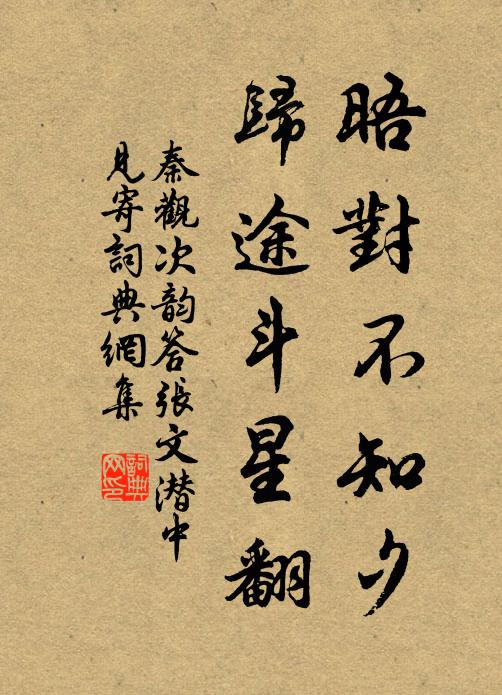 晤對不知夕
歸途斗星翻
秦觀次韵答張文潜中
見寄詞典網集
詞典
网印